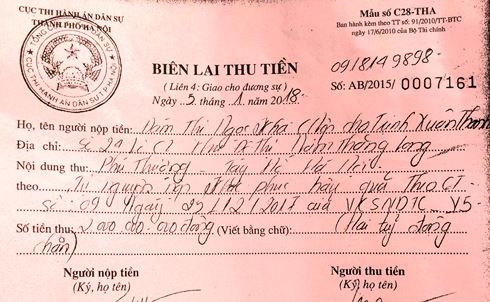 CỤC THI HÀNH ÁN DÂN SỰ
THÀNH PHỐ HÀ NỘI
Mẫu số C28-THA
Ban hành kèm theo TT số: 91/2010/TT-BTC
ngày 17/6/2010 của Bộ Tài chính
BIÊN LAI THU TIỀN
0918149898-
(Liên 4: Giao cho đương sự)
Số: AB/2015/ 0007161
Ngày 5 tháng 1 năm 2018-
Họ, tên người nộp tiền: Đàm Thị Ngọc Kha (Nộp cho Trịnh Xuân Thanh
Địa chỉ: Số Khu Đô Thị Nam Thăng Long
Nội dung thu: Phú Thượng - Tây Hồ Hà Nội
theo Tự nguyện nộp khắc phục hậu quả Theo CT
số 09 Ngày 29/12/2017 của VKSNDTC V5-
Số tiền thu: 2.000.000.000 đồng (Viết bằng chữ) (Hai tỷ đồng
chẵn)
Người nộp tiền
Người thu tiền
(Ký, họ tên)
(Ký, họ tên)